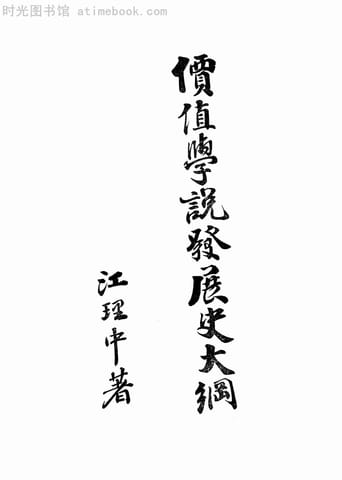 时光图书馆 atimebook.com
價值學說發展史大綱
江理中著